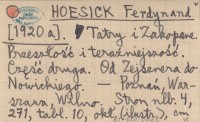 HOESICK Ferdynand
[1920a]. Tatry i Zakopane.
Przeszłość i teraźniejszość.
Część druga. Od Zejsznera do
Nowickiego. — Poznań, War-
szawa, Wilno. Stron nlb. 4,
271, tabl. 10, okł. (ilustr.), cm